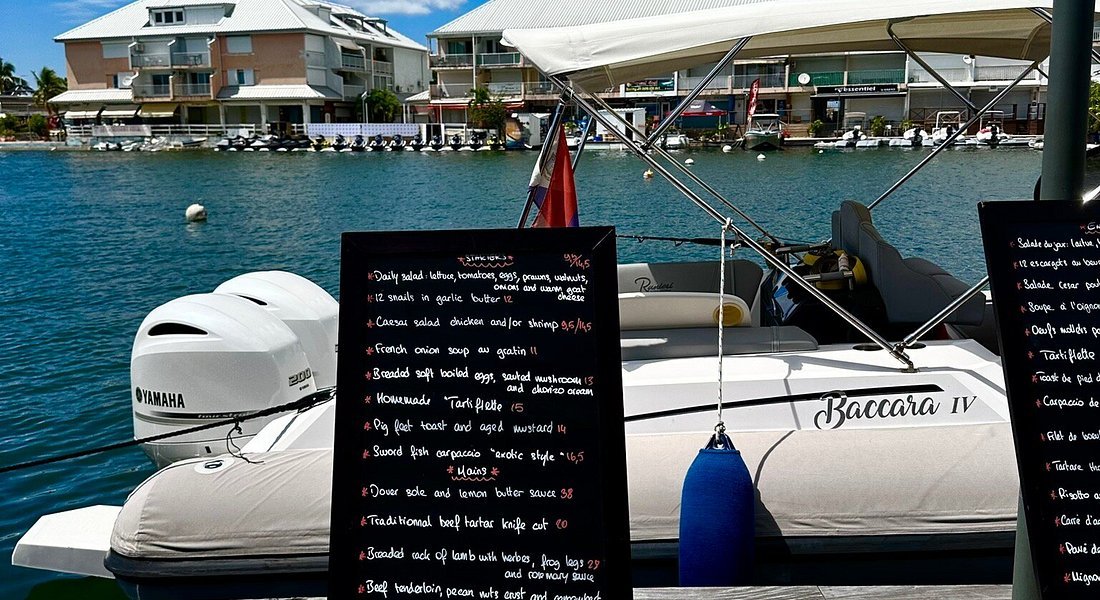 *STARTERS*
9,5/14,5
*Daily salad: lettuce, tomatoes, eggs, prawns, walnuts,
onions and warm goat
cheese
*12 snails in garlic butter 12
*Caesar salad chicken and/or shrimp 9,5/14,5
*French onion soup au gratin 11
*Breaded soft boiled eggs, sauted mushroom 13
and chorizo cream
*Homemade "Tartiflette 15
*Pig feet toast and aged mustard 14
*Sword fish carpaccio "exotic style" 16,5
*Mains*
*Dover sole and lemon butter sauce 38
*Traditionnal beef tartar knife cut 20
*Breaded rack of lamb with herbes, frog legs
and rosemary sauce
Beef tenderloin, pecan nuts crust and
*Salade du jour: laitue,
*12 escargots au
*Salade, Cesar
*Soupe à l'oignon
*Oeufs mollets
*Tartiflette
*Toast de pied d
*Carpaccio de
*Filet de boeuf
*Tartare
*Risotto
*Carré d'a
*Pavé de
*Mignon
YAMAHA
200
Ranieri
Baccara IV
l'essentiel